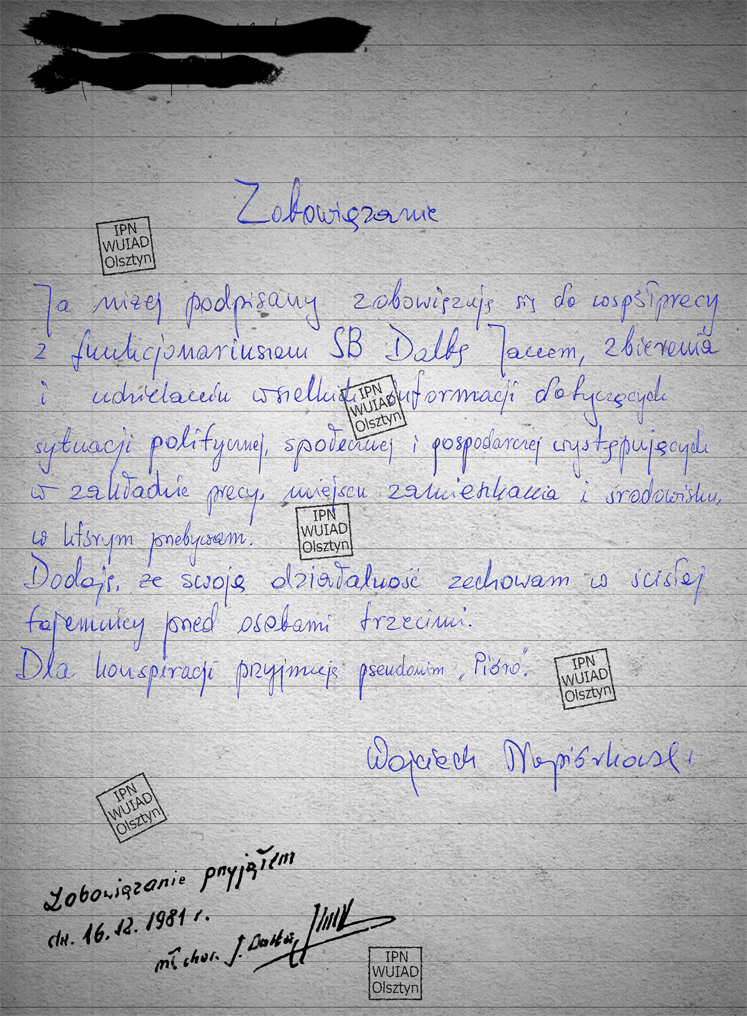 Zobowiązanie
IPN
WUIAD
Olsztyn
Ja niżej podpisany zobowiązuję się do współpracy
z funkcjonariuszem SB Dalbą Jacem, zbierania
i udzielaniu wszelkich informacji dotyczących
IPN
WUIAD
Olsztyn
sytuacji politycznej, społecznej i gospodarczej występujących
w zakładzie pracy, miejscu zamieszkania i środowisku,
w którym przebywam.
IPN
WUIAD
Olsztyn
Dodaję, że swoją działalność zachowam w ścisłej
tajemnicy przed osobami trzecimi.
Dla konspiracji przyjmuję pseudonim „Pióro”.
IPN
WUIAD
Olsztyn
Wojciech Napiórkowski
IPN
WUIAD
Olsztyn
Zobowiązanie przyjąłem
dn. 16.12.1981 r.
mł. chor. J.
IPN
WUIAD
Olsztyn